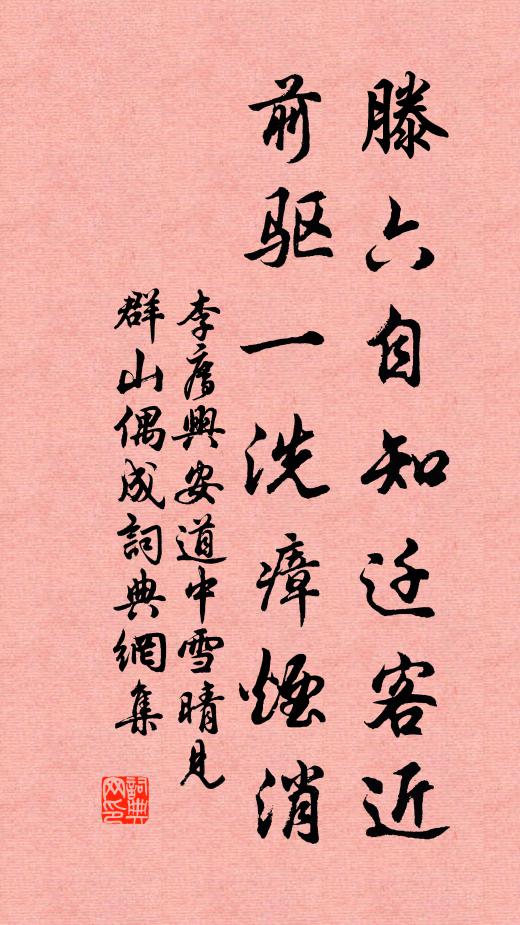 滕六自知迁客近
前驱一洗瘴煙消
李膺興安道中雪晴見
群山偶成詞典網集
詞典
网印